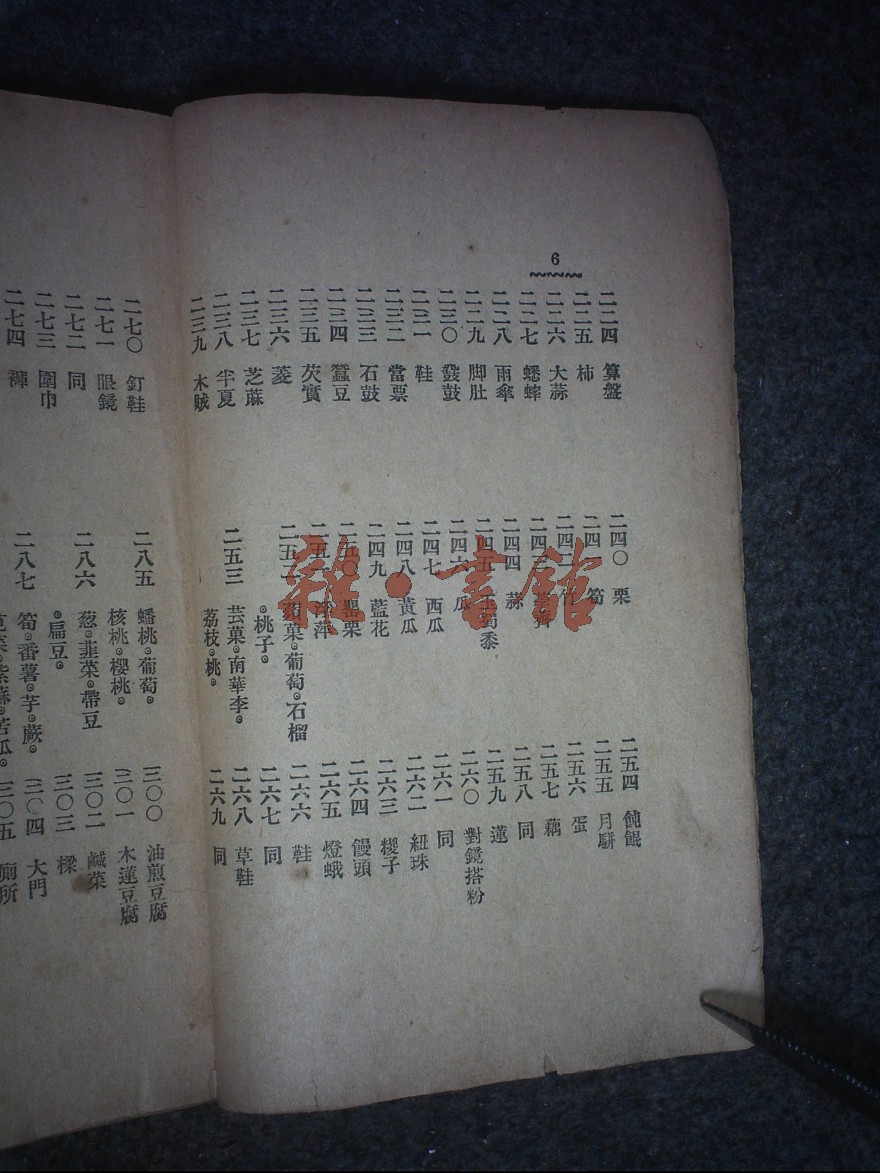 6
二二四 算盤
二二五 柿
二二六 大蒜
二二七 蟋蟀
二二八 雨傘
二二九 脚肚
二三〇 發鼓
二三一 鞋
二三二 當票
二三三 石鼓
二三四 蠶豆
二三五 芡實
二三六 菱
二三七 芝蔴
二三八 半夏
二三九 木賊
二四〇 栗
二四一 筍
二四二 竹
二四三
二四四 蒜
二四五 玉蜀黍
二四六 瓜
二四七 西瓜
二四八 黃瓜
二四九 藍花
二五〇 罌栗
二五一 浮萍
二五二 蘋菓。葡萄。石榴
。桃子。
二五三 芸菓。南華李。
荔枝。桃。
二五四 飩餛
二五五 月餅
二五六 蛋
二五七 藕
二五八 同
二五九 蓮
二六〇 對鏡搭粉
二六一 同
二六二 紐珠
二六三 糉子
二六四 饅頭
二六五 燈蛾
二六六 鞋
二六七 同
二六八 草鞋
二六九 同
二七〇 釘鞋
二七一 眼鏡
二七二 同
二七三 圍巾
二七四 褲
二八五 蟠桃。葡萄。
核桃。櫻桃。
二八六 葱。韭菜。帶豆
。扁豆。
二八七 筍。番薯。芋。蕨。
莧菜。紫蘇。苦瓜。
三〇〇 油煎豆腐
三〇一 木蓮豆腐
三〇二 鹹菜
三〇三 樑
三〇四 大門
三〇五 廁所
雜·書館